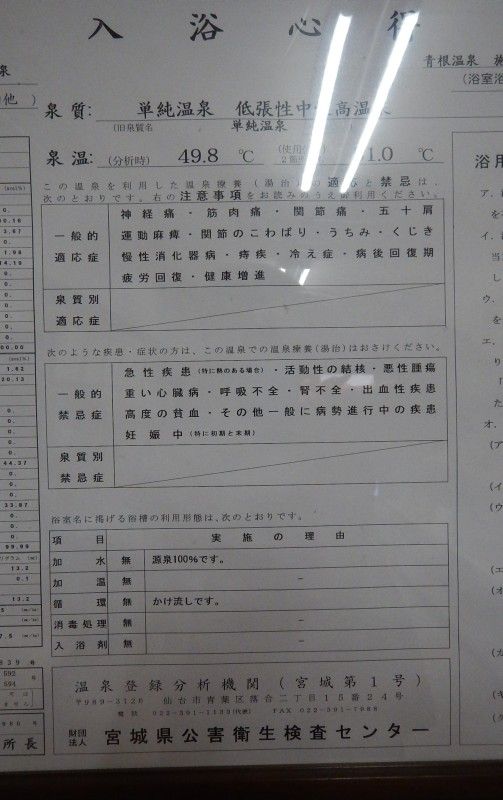 入浴心得
青根温泉
(浴室浴
泉
他 )
泉質: 単純温泉 低張性中 高温
(旧泉質名 単純温泉
泉温: (分析時) 49.8 ℃ 1.0 ℃
この温泉を利用した温泉療養(湯治)の適応と禁忌は、
次のとおりです。右の注意事項をお読みのうえ御利用ください。
一般的適応症
神経痛・筋肉痛・関節痛・五十肩
運動麻痺・関節のこわばり・うちみ・くじき
慢性消化器病・痔疾・冷え症・病後回復期
疲労回復・健康増進
泉質別適応症
次のような疾患・症状の方は、この温泉での温泉療養(湯治)はおさけください。
一般的禁忌症
急性疾患(特に熱のある場合)・活動性の結核・悪性腫瘍
重い心臓病・呼吸不全・腎不全・出血性疾患
高度の貧血・その他一般に病勢進行中の疾患
妊娠中(特に初期と末期)
泉質別禁忌症
浴室名に掲げる浴槽の利用形態は、次のとおりです。
項目 実施の理由
加水 無 源泉100%です。
加温 無 −
循環 無 かけ流しです。
消毒処理 無 −
入浴剤 無 −
温泉登録分析機関(宮城第1号)
〒989-3126 仙台市青葉区落合二丁目15番24号
電話 022-391-1133(代表) FAX 022-391-7988
財団法人 宮城県公害衛生検査センター
所長
浴用